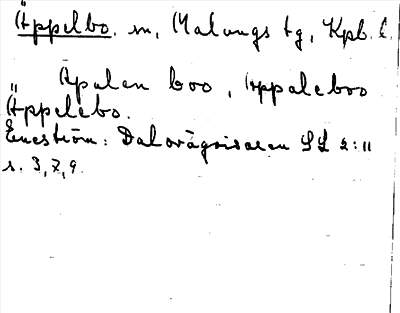 Äppelbo. sn, Malungs tg, Kpb. l.
Äpulen boo, Eppaleboo
Äppelebo.
Eneström: Dalvägvisaren SL 2:11
s. 3, 7, 9.